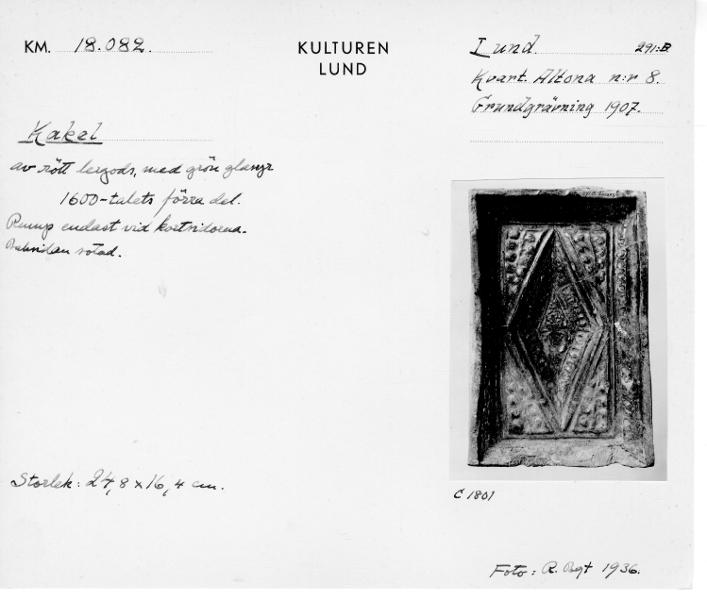 KM. 18.082.
KULTUREN
LUND
Lund. 291:B
Kvart. Altona n:r 8.
Grundgrävning 1907.
Kakel
av rött lergods, med grön glasyr
1600-talets förra del.
Rump endast vid kortsidorna.
Baksidan sotad.
Storlek: 24,8 x 16,4 cm.
C 1801
Foto: R. 1936.